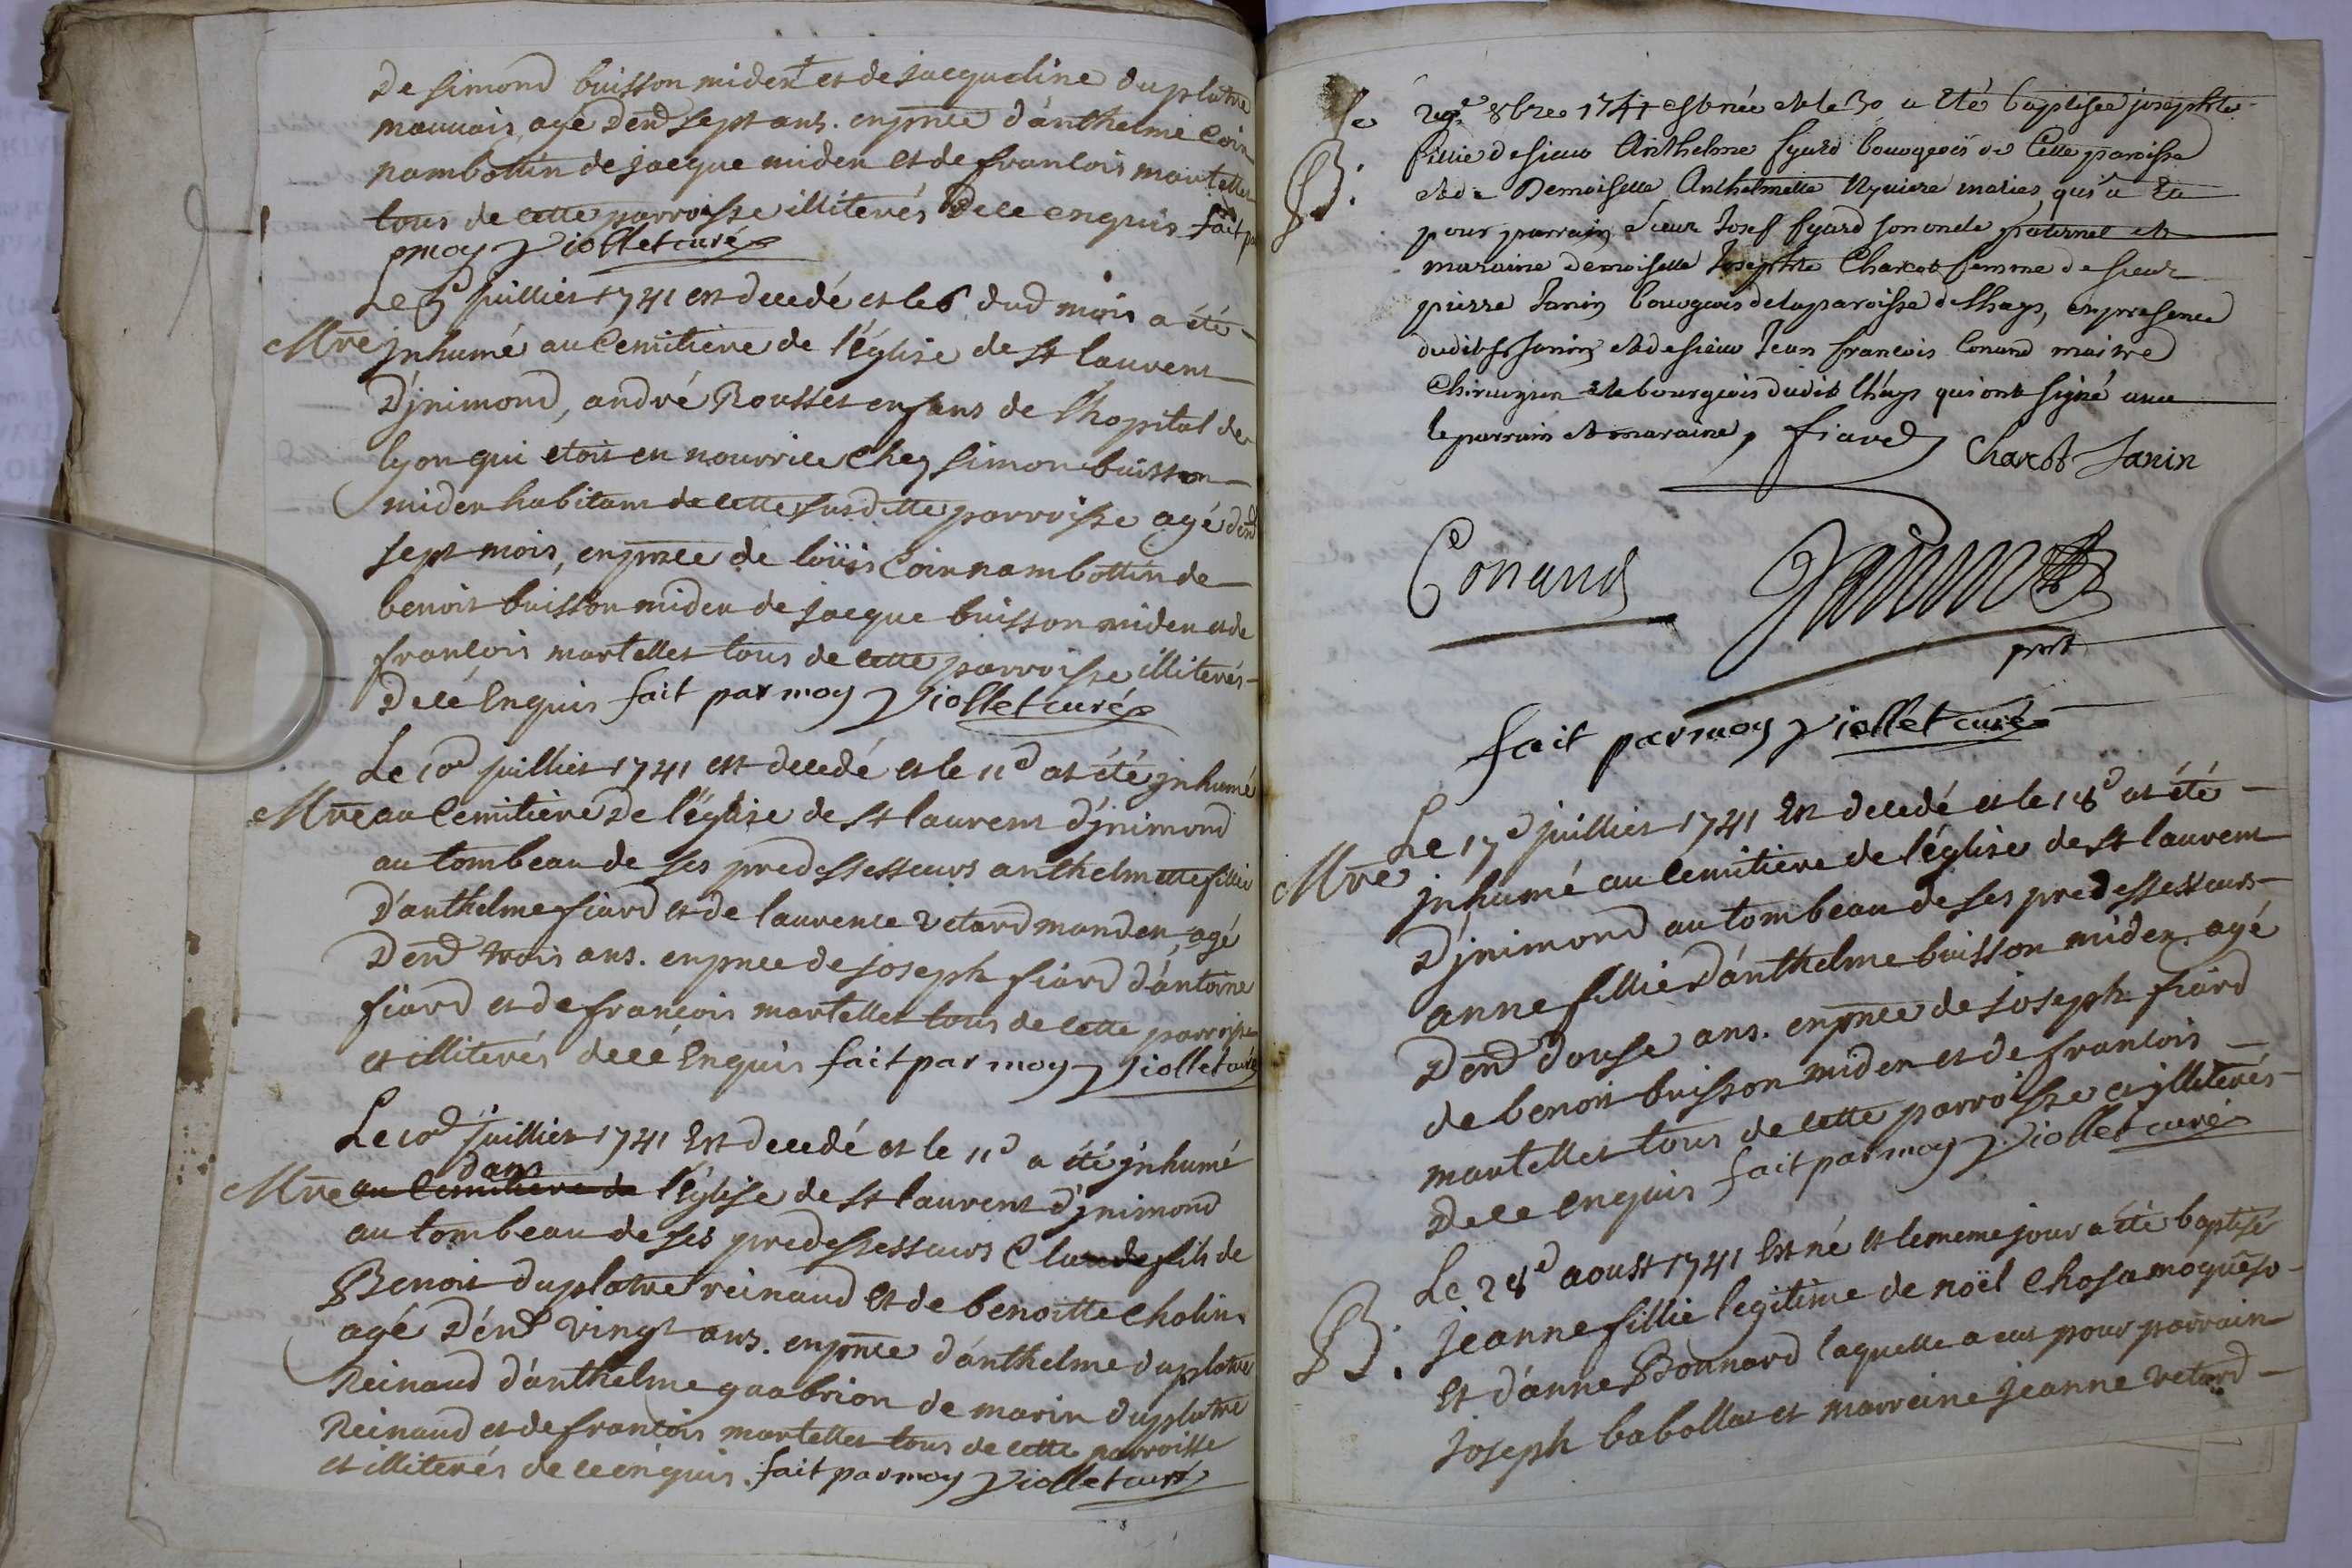 De simond buisson miden et de jacqueline duplatre
mauvais, agé d'end sept ans. en pnce d'anthelme Coin
nambottin de jacque miden et de francois martellet
tous de cette parroisse illiterés de ce enquis fait p
moy Viollet curé
Le 5 juilliet 1741 est decedé et le 6 dud mois a été
Mre jnhumé au Cemitiere de l'église de st laurent
D'jnimond, andré Rousset enfans de l'hopital de
lyon qui etoit en nourrice chez simon buisson
miden habitant de cette susditte parroisse agé d'end
sept mois, en pnce de loüis Coin nambottin de
benoit buisson miden de jacque buisson miden et de
francois martellet tous de cette parroisse illiterés
De cé Enquis fait par moy Viollet curé
Le 10d juilliet 1741 est decedé et le 11d at été jnhumé
Mre au Cemitiere de l'église de st laurent d'jnimond
au tombeau de ses predessesseurs anthelmette fillie
D'anthelme fiard et de laurence vetard manden, agé
D'end trois ans. en pnce de joseph fiard d'antoine
fiard et de francois martellet tous de cette parroisse
et illiterés de cé Enquis fait par moy Viollet curé
Le 10d juilliet 1741 Est decedé et le 11d a été jnhumé
dans
Mre au Cemitiere de l'église de st laurent d'jnimond
au tombeau de ses predessesseurs Claude fils de
Benoit duplatre reinaud et de benoitte cholin
agé d'end vingt ans. en pnce d'anthelme duplatre
Reinaud d'anthelme guabrion de marin duplatre
Reinaud et de francois martellet tous de cette parroisse
et illiterés de ce enquis. fait par moy Viollet curé
Le 29e 8bre 1741 est née et le 30 a eté baptisée josephte
B. fillie de sieur Anthelme fyard bourgeois de Cette paroisse
et de Demoiselle Anthelmette mariés, qui a eu
pour parrain sieur Josef fyard son oncle paternel et
maraine demoiselle Josephte Charcot femme de sieur
pierre Janin bourgeois de la paroisse de lhays, en presence
dudit sr Janin et de sieur Jean francois Conand maitre
Chirurgien et bourgeois dudit lhays qui ont signé avec
le parrain et maraine, fiard Charcot Janin
Conand Janin
prst
fait par moy Viollet curé
Le 17d juilliet 1741 Est decedé et le 18d at été
Mre jnhumé au Cemitiere de l'église de st laurent
D'jnimond au tombeau de ses predessesseurs
anne fillie d'anthelme buisson miden agé
D'end douse ans. en pnce de joseph fiard
de benoit buisson miden et de francois
martellet tous de cette parroisse et jlliterés
De ce enquis fait par moy Viollet curé
Le 28d aoust 1741 Est né et le meme jour a été baptisé
B. Jeanne fillie legitime de noël
Et d'anne Bonnard laquelle a eut pour parrain
Joseph babollat et marreine jeanne vetard